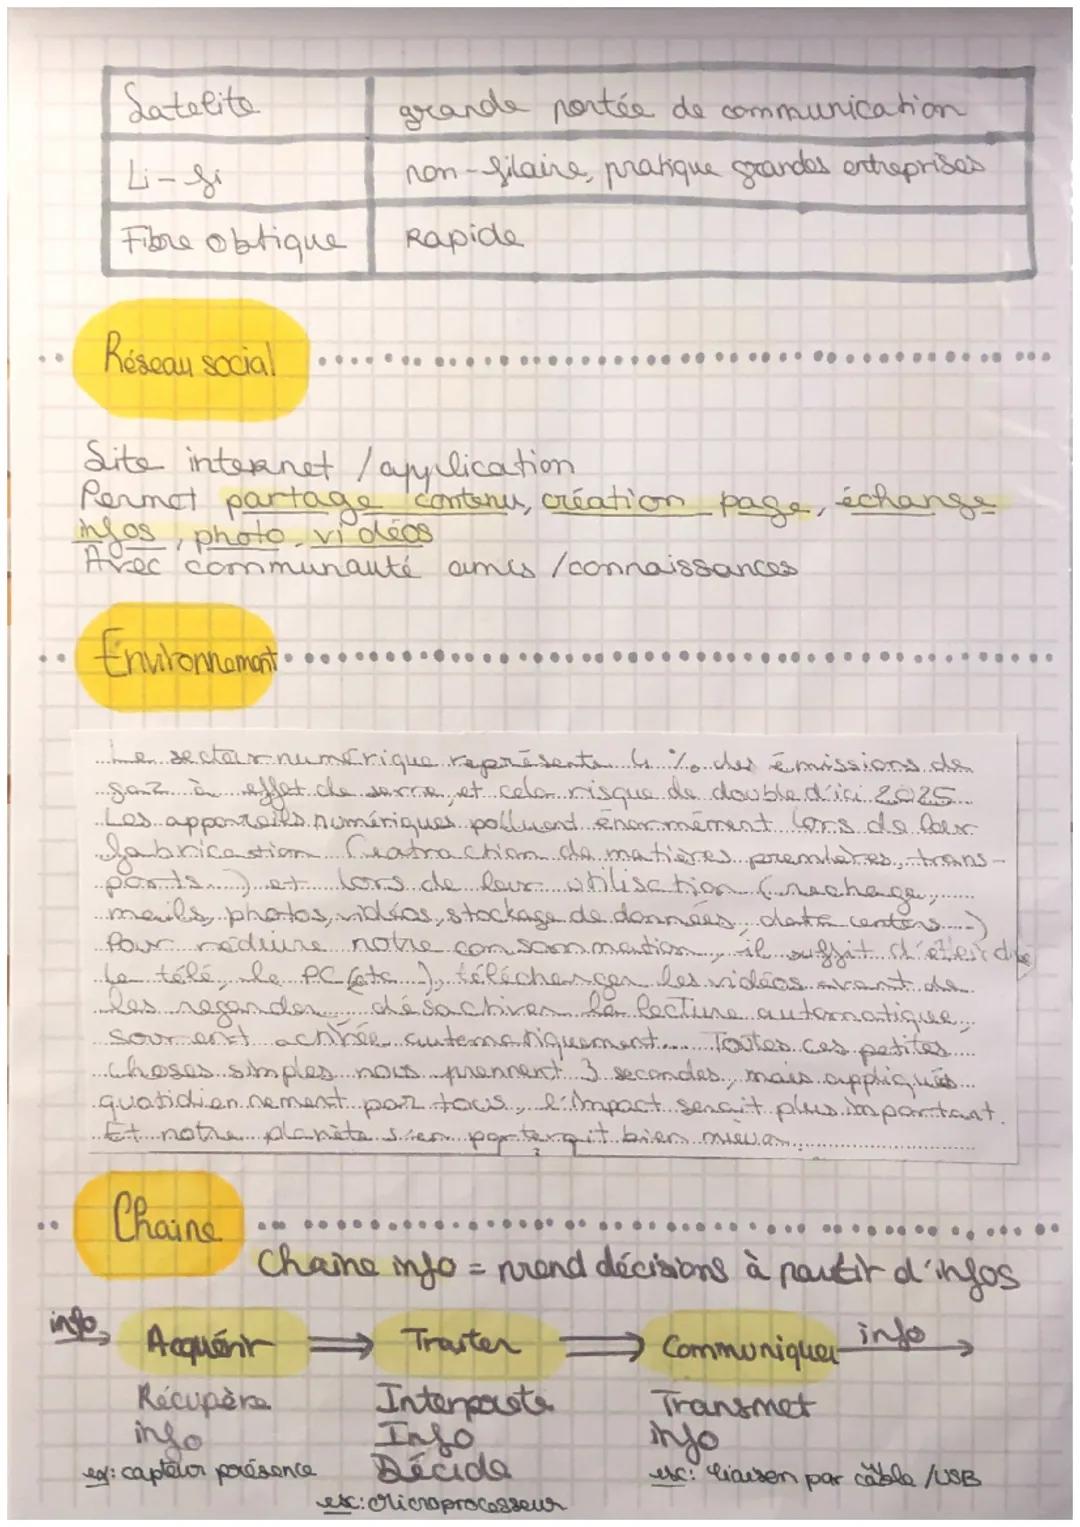 Satelite grande portée de communication
Li-fi non-filaire, pratique grandes entreprises
Fibre obtique Rapide
Réseau social
Site internet / application
Permet partage contenu, création page, échange
infos, photo, vidéos
Avec communauté amis / connaissances
Environnement
Le secteur numérique représente 4 % des émissions de
gaz à effet de serre, et cela risque de double d'ici 2025.
Les appareils numériques polluent énormément lors de leur
fabrication (extraction de matières premières, trans-
ports...) et lors de leur utilisation (recharge,
mails, photos, vidéos, stockage de données, data centers...)
Pour réduire notre consommation, il suffit d'éteindre
la télé, le PC (etc...), télécharger les vidéos avant de
les regarder... désactiver la lecture automatique,
souvent activée automatiquement... Toutes ces petites
choses simples nous prennent 3 secondes, mais appliqués
quotidiennement par tous, l'impact serait plus important.
Et notre planète s'en porterait bien mieux.
Chaine
Chaine info = prend décisions à partir d'infos
info Acquérir ⇒ Traiter ⇒ Communiquer info
Récupère Interprète Transmet
info Info info
ex: capteur présence Décide ex: liaison par câble /USB
ex: Microprocesseur